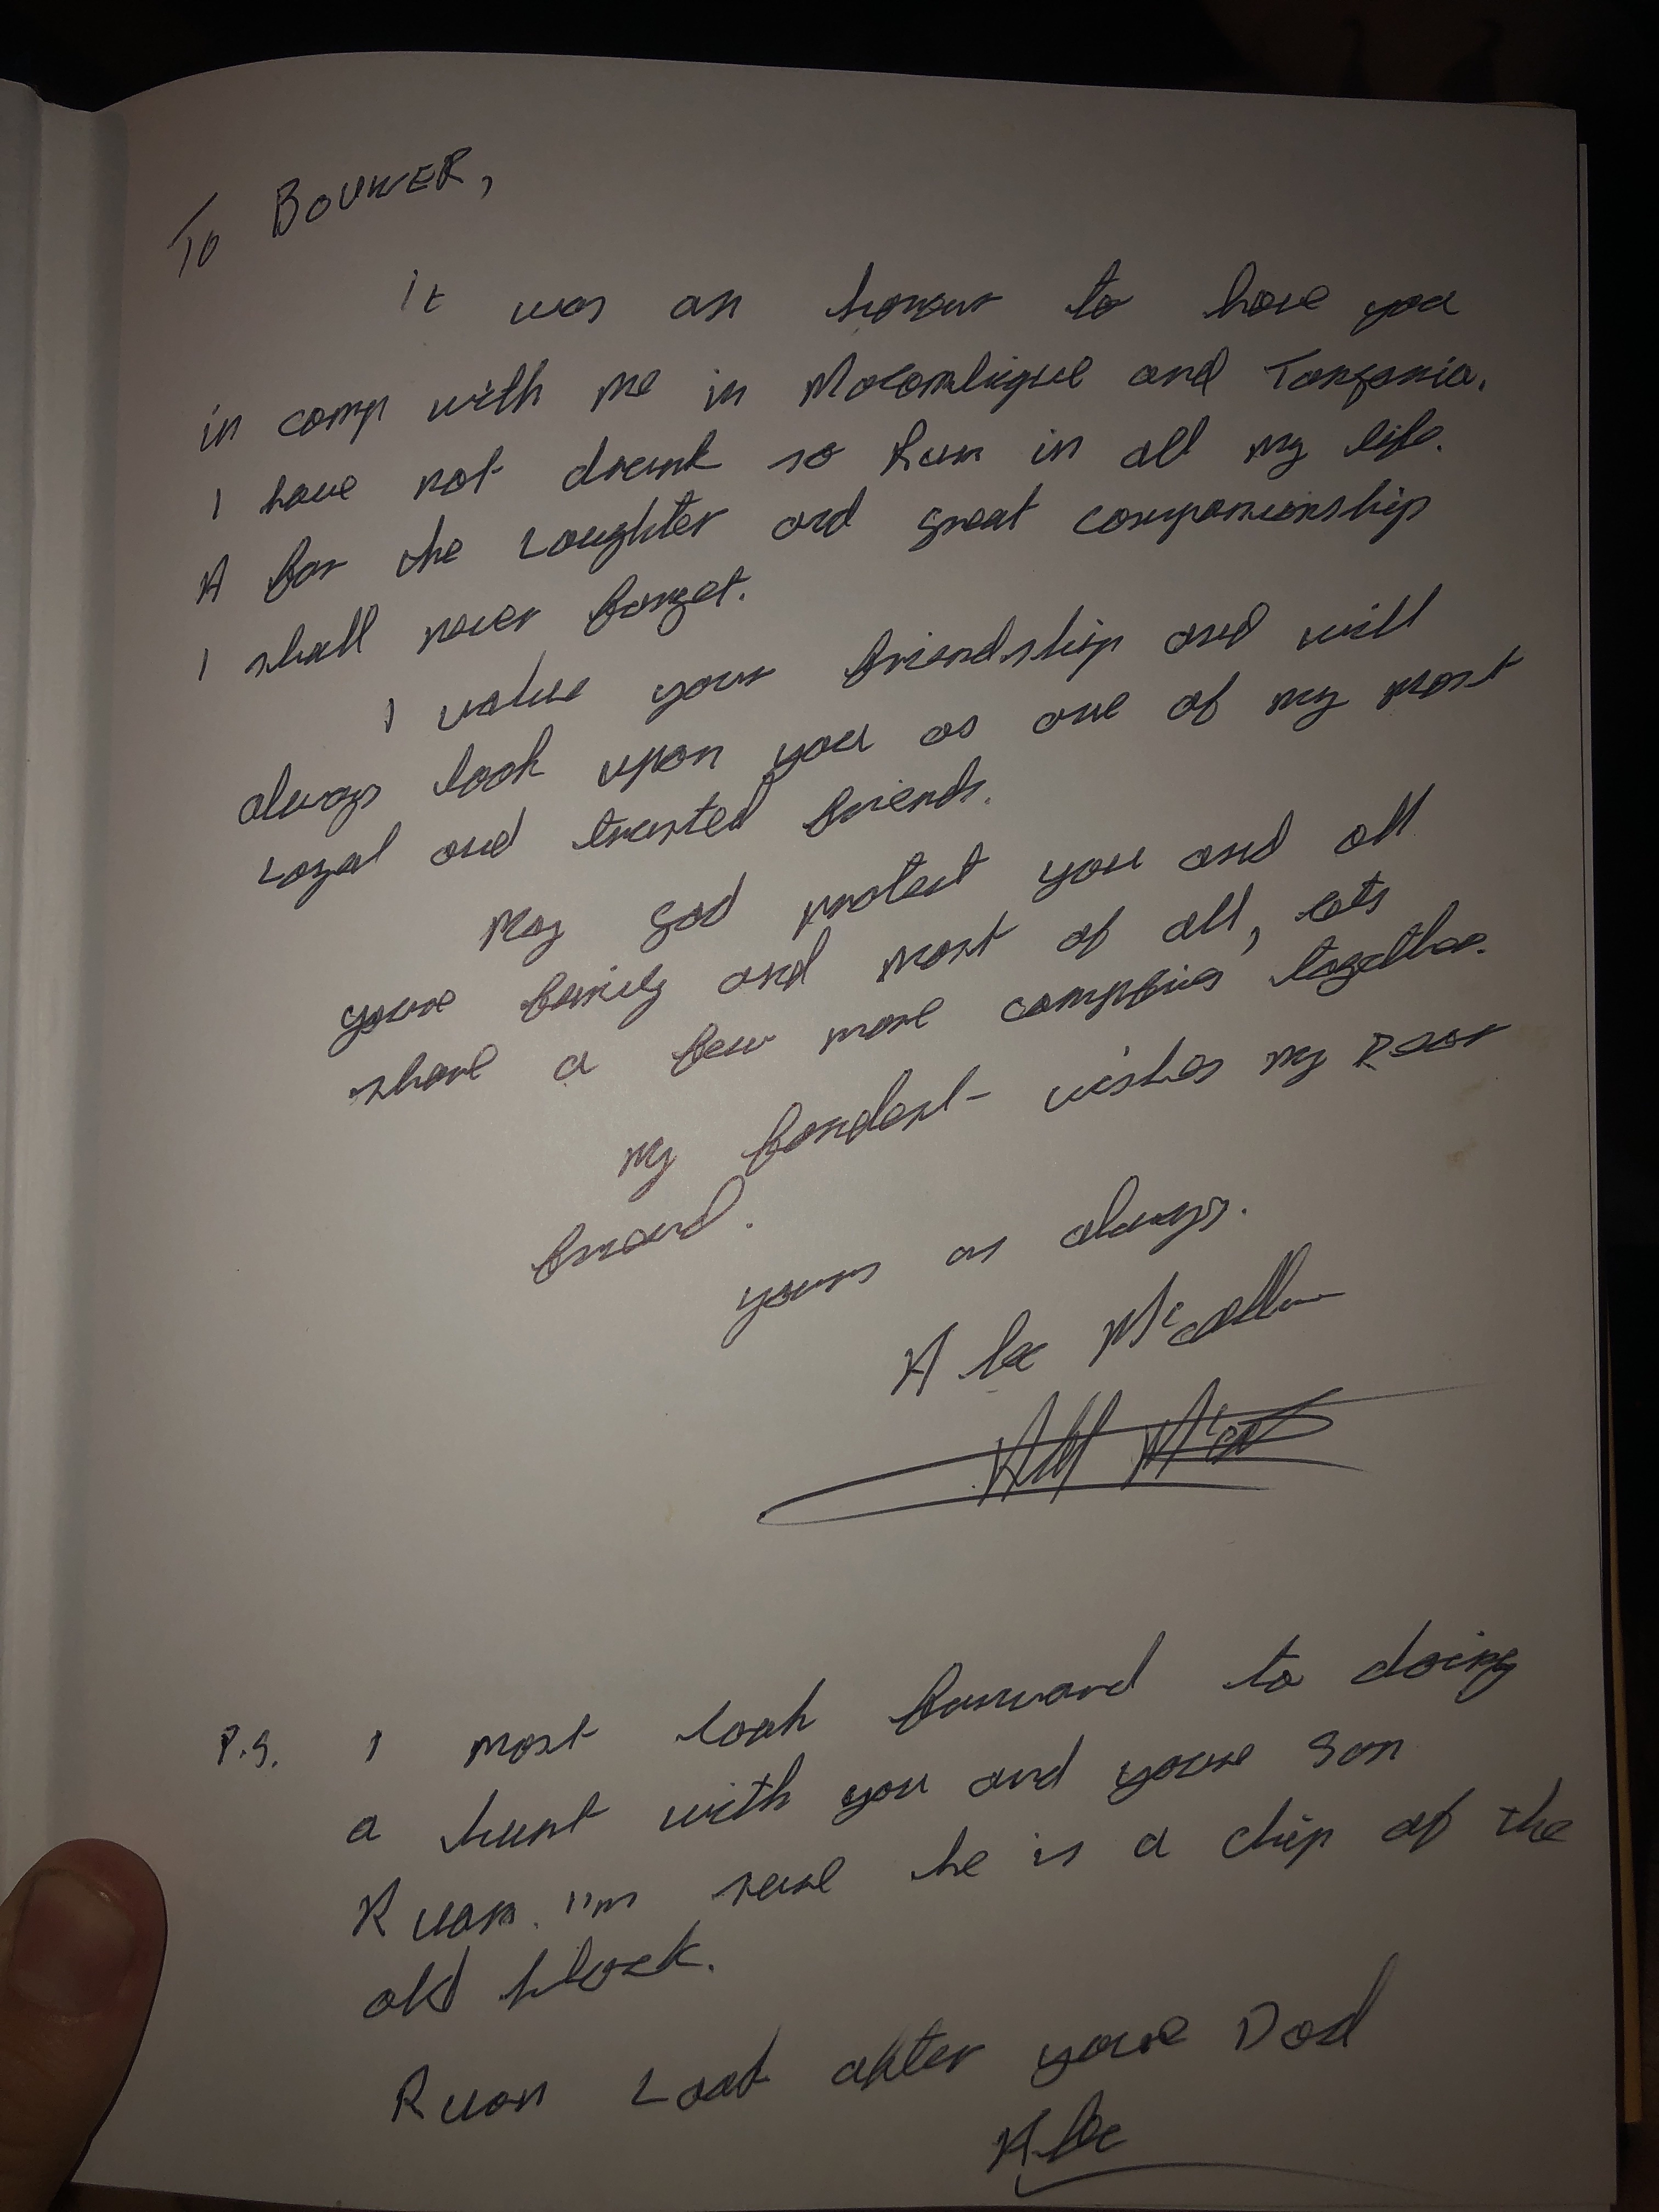 To BOUWER,
It was an honour to have you
in camp with me in Mocambique and Tanzania.
I have not drunk so Rum in all my life.
A for the Laughter and great companionship
I shall never forget.
I value your friendship and will
always look upon you as one of my most
Loyal and trusted friends.
May god protect you and all
youre family and most of all, lets
share a few more together.
My fondest wishes my Dear
friend.
yours as always.
P.S. I most look forward to doing
a hunt with you and youre Son
Ruan. I'm sure he is a chip of the
old block.
Ruan Look after youre Dad